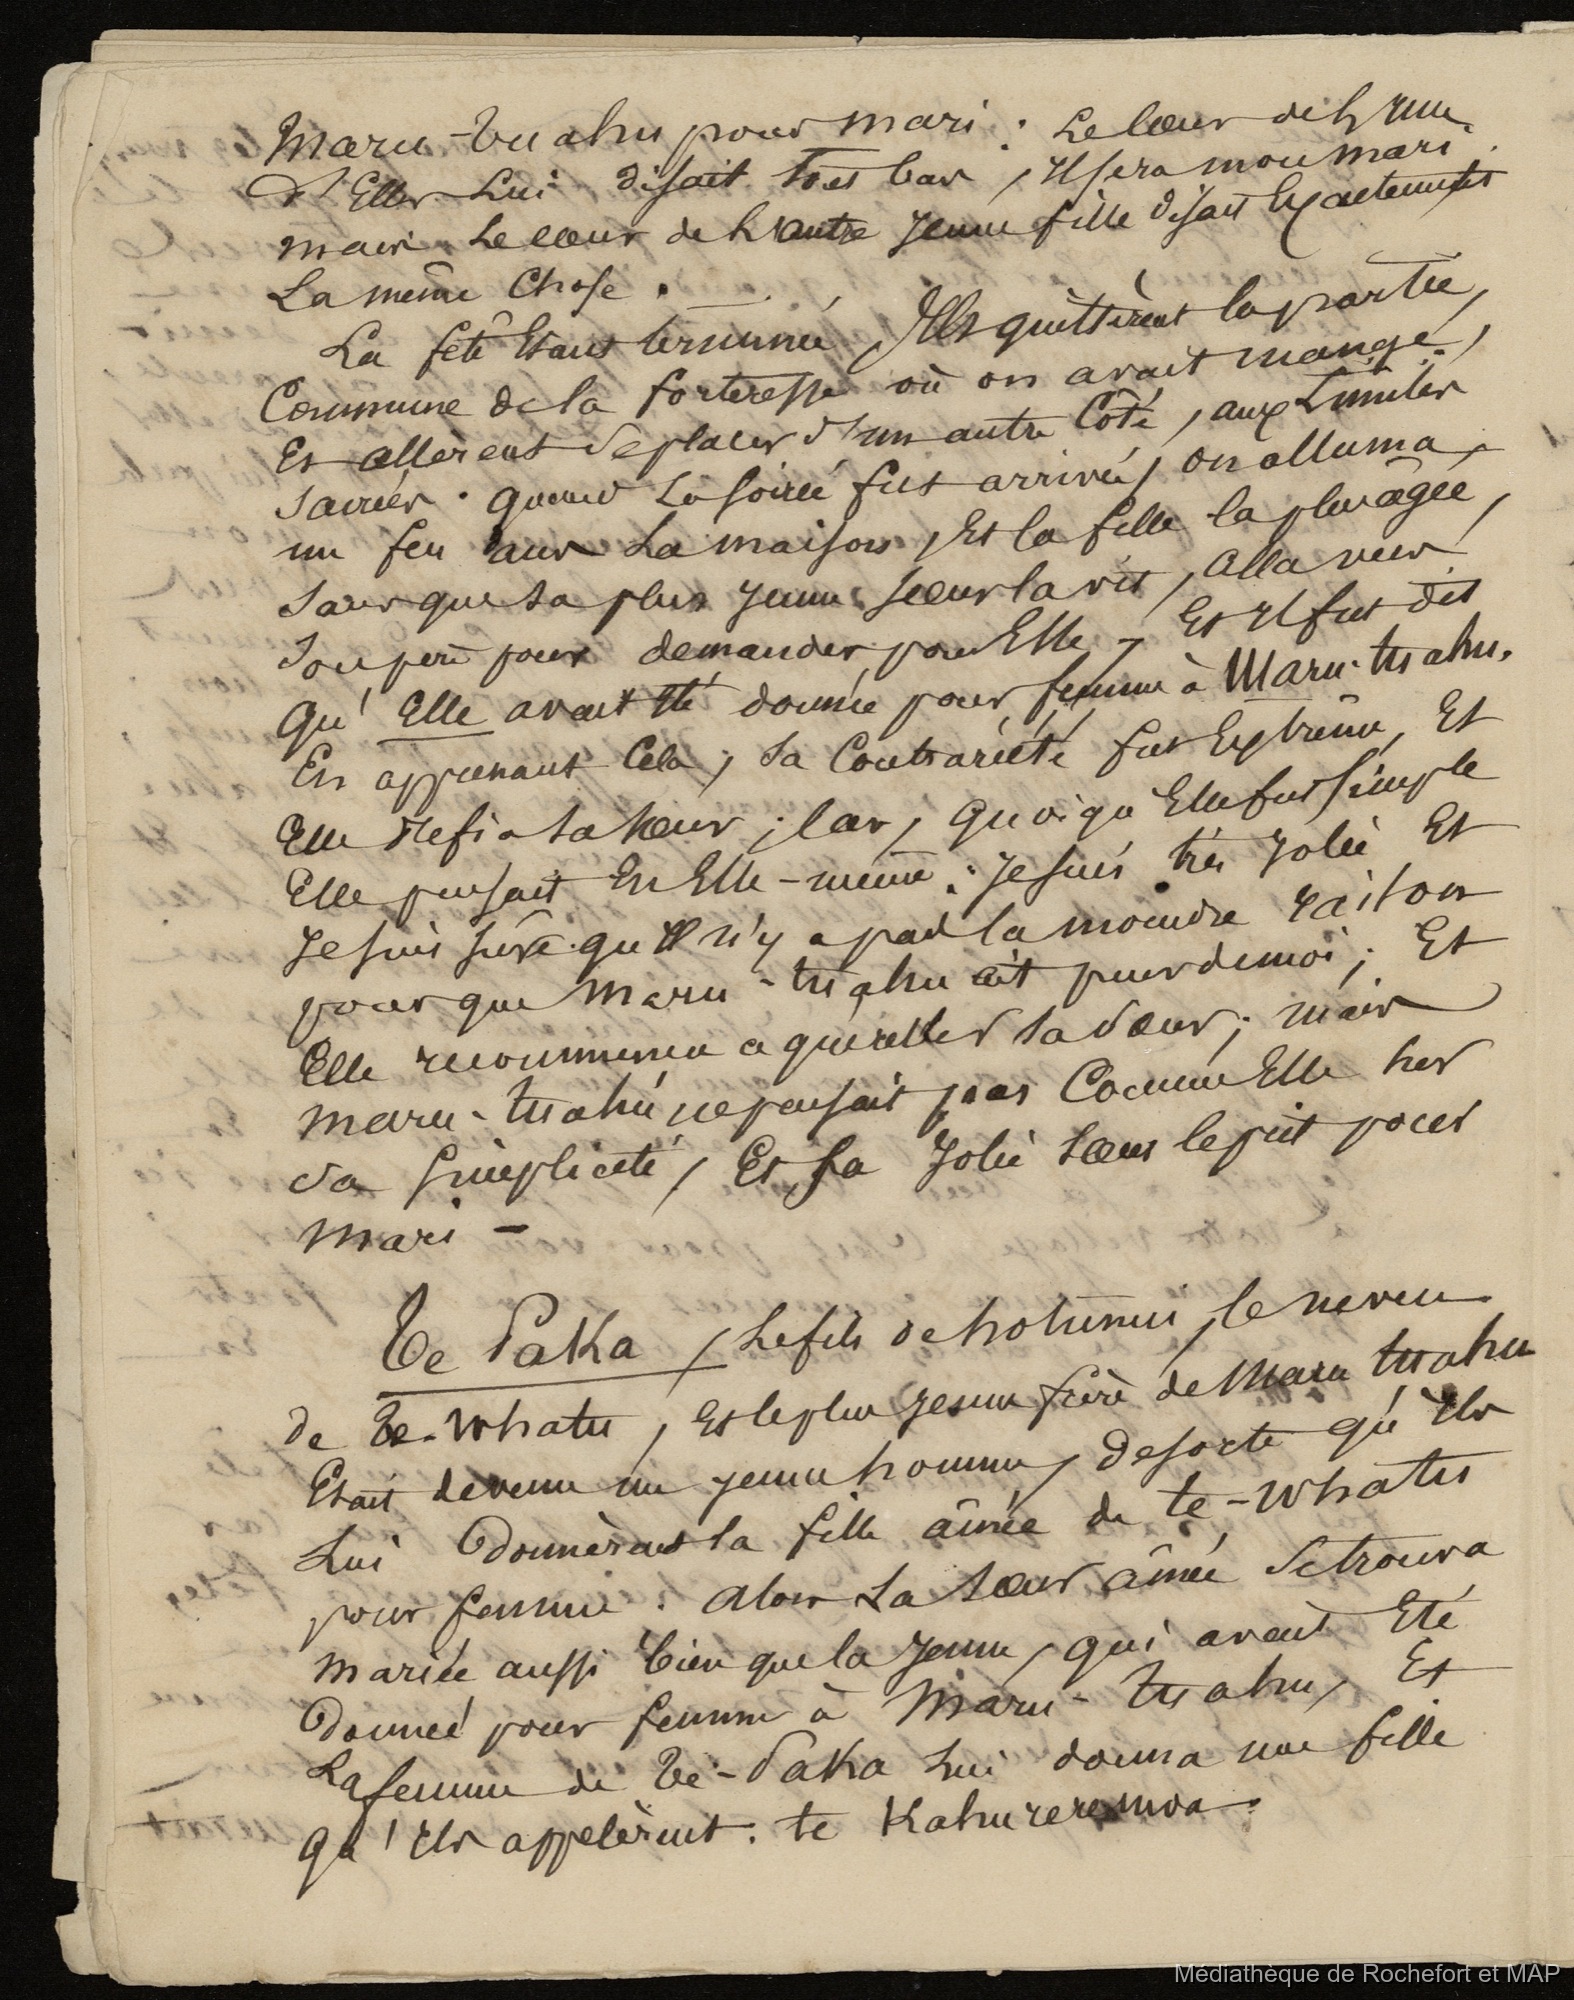 Maru-Tuahu pour mari : Le Cœur de l'une
d'Elles Lui disait tout bas, Il sera mon mari
mais Le cœur de l'autre Jeune fille disait Exactement
La même Chose.
La fête Etant terminée, Ils quittèrent la partie,
Commune de la forteresse où on avait mangé,
Et allèrent se placer d'un autre Côté, aux Limites
sacrées. quand La soirée fut arrivée, on alluma,
un feu dans La maison, Et la fille la plus âgée,
sans que sa plus Jeune sœur la vit, alla vers
son père pour demander pour Elle, Et Il fut dit
qu'Elle avait été donnée pour femme à Maru-tuahu.
En apprenant Cela, sa Contrariété fut Extrême, Et
Elle défia sa sœur ; Car, quoiqu'Elle fut simple
Elle pensait En Elle-même : Je suis très Jolie Et
Je suis sûre qu'Il n'y a pas la moindre raison
pour que Maru-tuahu ait peur de moi ; Et
Elle recommença a quereller sa sœur ; mais
Maru-tuahu ne pensait pas Comme Elle
sa simplicité, Et sa Jolie sœur le prit pour
mari -
Te Paka, Le fils de hotunui, le neveu
de Te-Whatu, Et le plus Jeune frère de Maru tuahu
Etait devenu un Jeune homme, de sorte qu'Ils
Lui donnèrent la fille aînée de te-Whatu
pour femme. alors La sœur aînée se trouva
mariée aussi bien que la Jeune, qui avait Eté
donnée pour femme à Maru-tuahu, Et
La femme de Te-Paka Lui donna une fille
qu'Ils appelèrent. te Kahureremoa.
Médiathèque de Rochefort et MAP